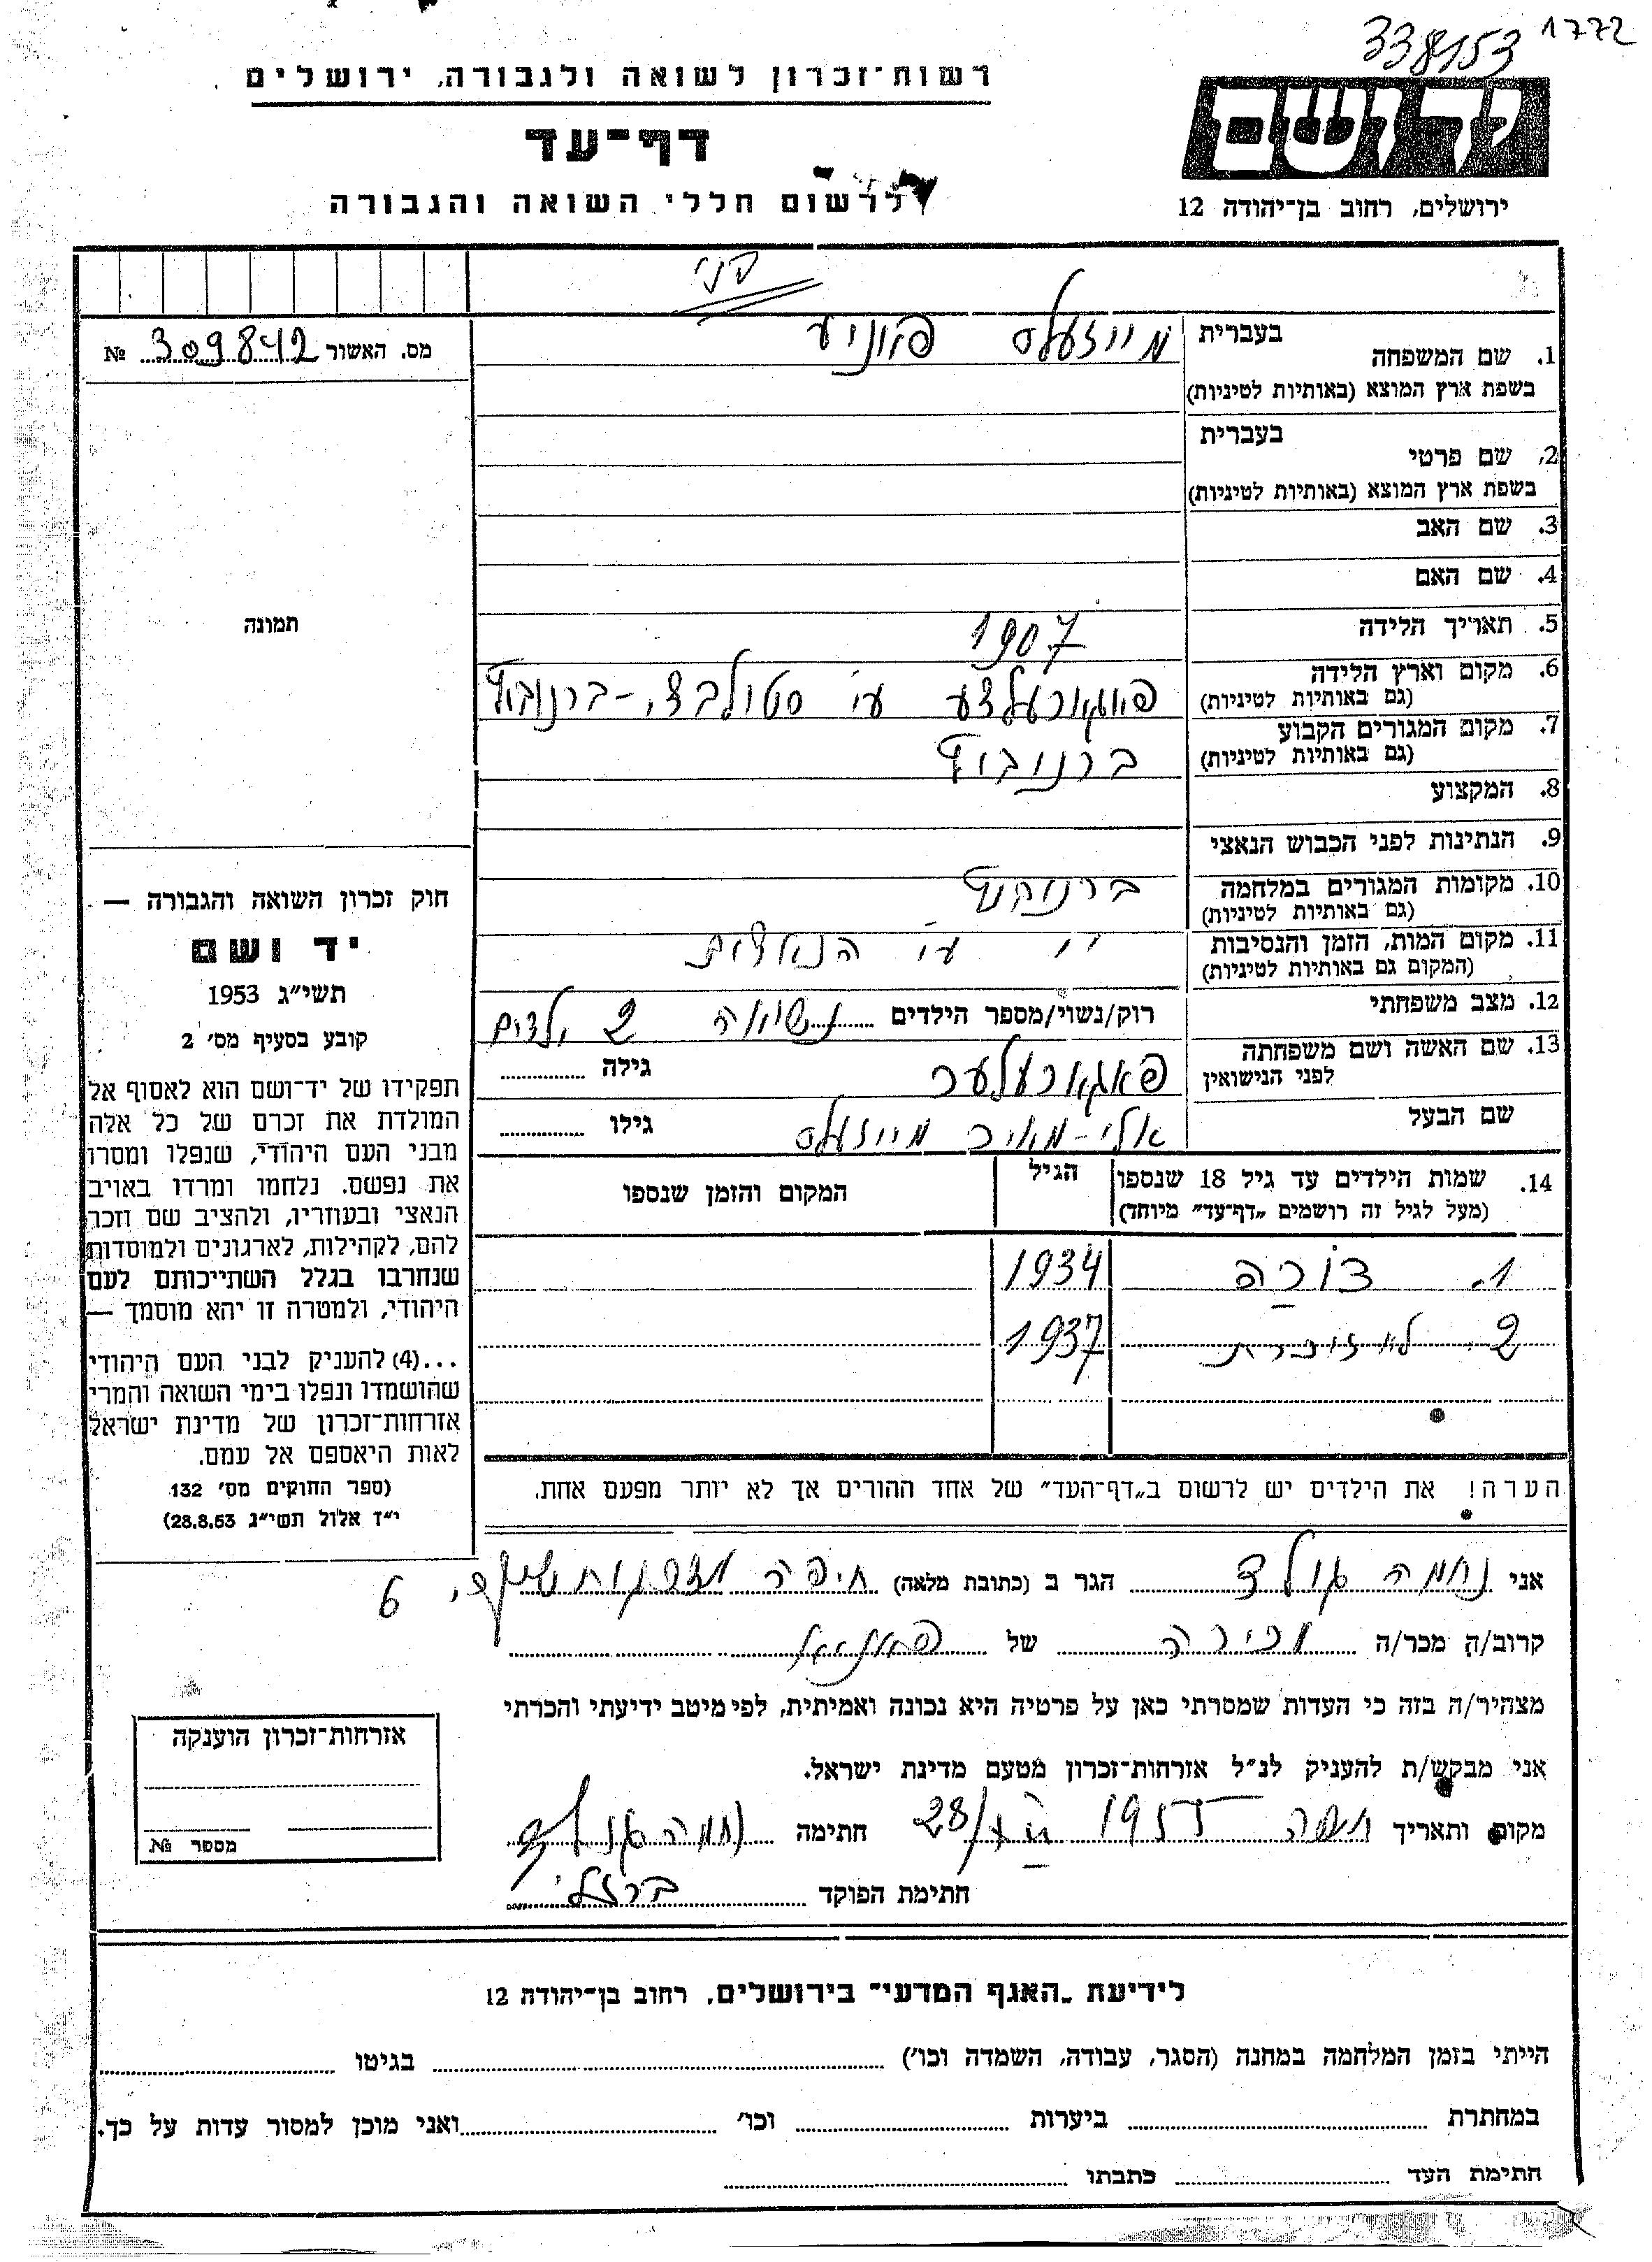 338153 1772
רשות־זכרון לשואה ולגבורה, ירושלים
יד ושם
דף־עד
לרשום חללי השואה והגבורה
ירושלים, רחוב בן־יהודה 12
מס. האשור 309842 №
בעברית
1. שם המשפחה מייזעלס פוניע
בשפת ארץ המוצא (באותיות לטיניות)
בעברית
2. שם פרטי
בשפת ארץ המוצא (באותיות לטיניות)
3. שם האב
4. שם האם
תמונה
5. תאריך הלידה 1907
6. מקום וארץ הלידה
(גם באותיות לטיניות)
7. מקום המגורים הקבוע
(גם באותיות לטיניות)
8. המקצוע
9. הנתינות לפני הכבוש הנאצי
10. מקומות המגורים במלחמה
(גם באותיות לטיניות)
11. מקום המות, הזמן והנסיבות " ע״י הנאצים
(המקום גם באותיות לטיניות)
12. מצב משפחתי רוק/נשוי/מספר הילדים נשואה 2 ילדים
13. שם האשה ושם משפחתה
לפני הנישואין
גילה
שם הבעל אלי-מאיר מייזעלס גילו
14. שמות הילדים עד גיל 18 שנספו הגיל המקום והזמן שנספו
(מעל לגיל זה רושמים „דף־עד״ מיוחד)
1. צורה 1934
2. לא זוכרת 1937
הערה! את הילדים יש לרשום ב„דף־העד״ של אחד ההורים אך לא יותר מפעם אחת.
חוק זכרון השואה והגבורה —
יד ושם
תשי״ג 1953
קובע בסעיף מס׳ 2
תפקידו של יד־ושם הוא לאסוף אל
המולדת את זכרם של כל אלה
מבני העם היהודי, שנפלו ומסרו
את נפשם. נלחמו ומרדו באויב
הנאצי ובעוזריו, ולהציב שם וזכר
להם, לקהילות, לארגונים ולמוסדות
שנחרבו בגלל השתייכותם לעם
היהודי, ולמטרה זו יהא מוסמך —
...(4) להעניק לבני העם היהודי
שהושמדו ונפלו בימי השואה והמרי
אזרחות־זכרון של מדינת ישראל
לאות היאספם אל עמם.
(ספר החוקים מס׳ 132
י״ז אלול תשי״ג 28.8.53)
אני נחמה גולד הגר ב (כתובת מלאה) חיפה 6
קרוב/ה מכר/ה מכירה של פאניא
מצהיר/ה בזה כי העדות שמסרתי כאן על פרטיה היא נכונה ואמיתית, לפי מיטב ידיעתי והכרתי
אני מבקש/ת להעניק לנ״ל אזרחות־זכרון מטעם מדינת ישראל.
מקום ותאריך חיפה 1955 28/ חתימה נחמה גולד
חתימת הפוקד ברזלי
אזרחות־זכרון הוענקה
מספר №
לידיעת „האגף המדעי״ בירושלים. רחוב בן־יהודה 12
הייתי בזמן המלחמה במחנה (הסגר, עבודה, השמדה וכו׳) בגיטו
במחתרת ביערות וכו׳ ואני מוכן למסור עדות על כך.
חתימת העד כתבתו